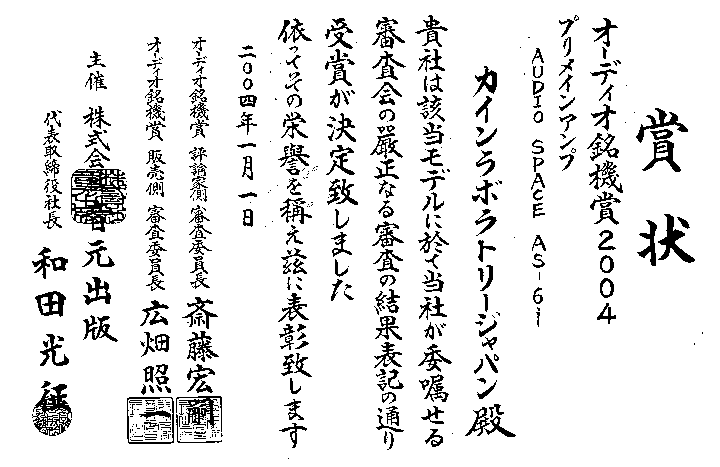 賞状
オーディオ銘機賞2004
プリメインアンプ
AUDIO SPACE AS-6i
カインラボラトリージャパン殿
貴社は該当モデルに於て当社が委嘱せる
審査会の厳正なる審査の結果表記の通り
受賞が決定致しました
依ってその栄誉を称え玆に表彰致します
二〇〇四年一月一日
オーディオ銘機賞 評論家側 審査委員長 斎藤宏嗣
オーディオ銘機賞 販売側 審査委員長 広畑照一
主催 株式会社音元出版
代表取締役社長 和田光征